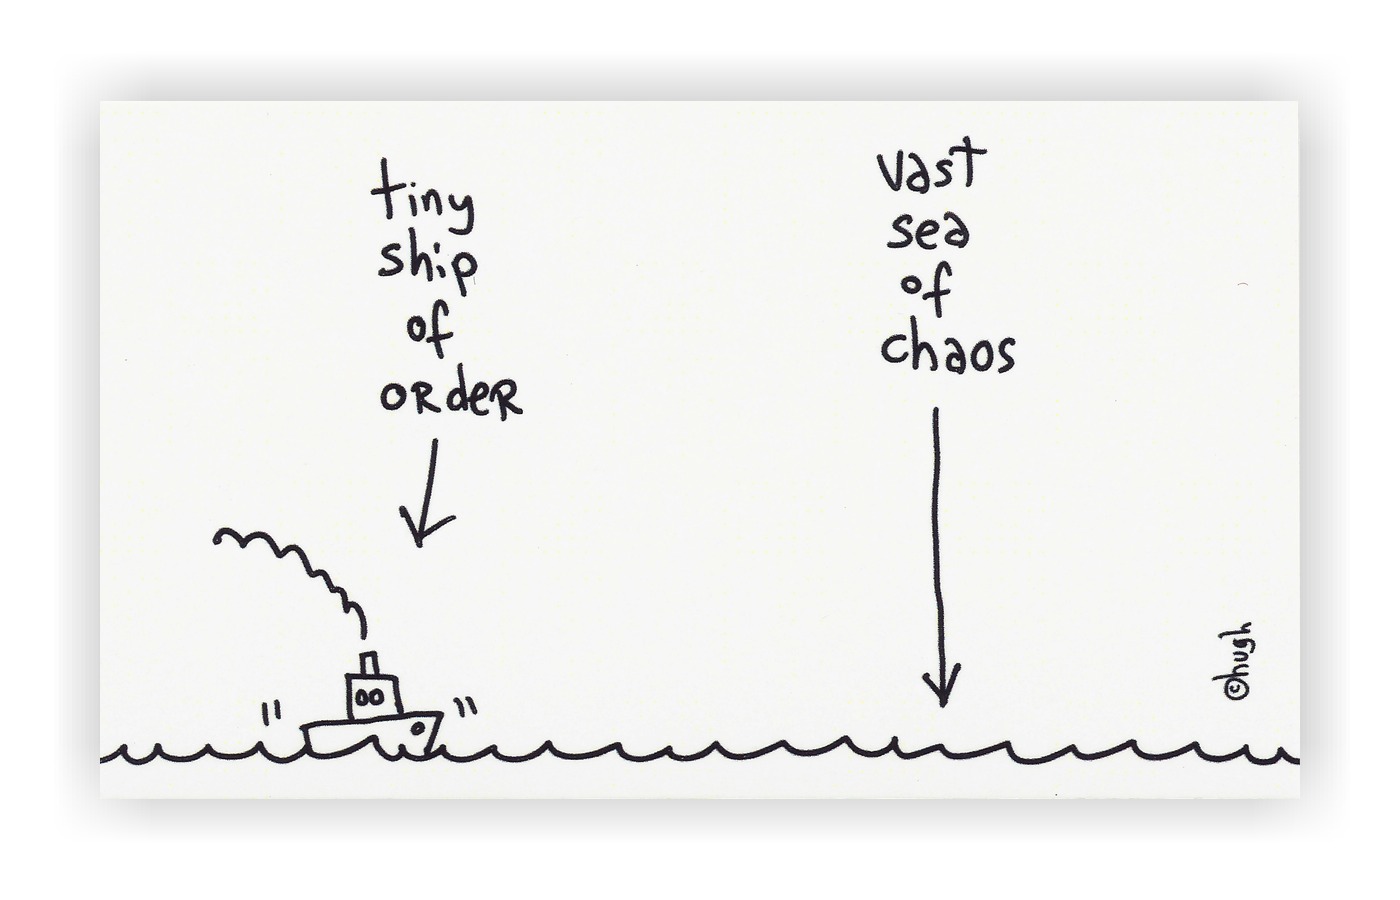 tiny
ship
of
order
vast
sea
of
chaos
©hugh